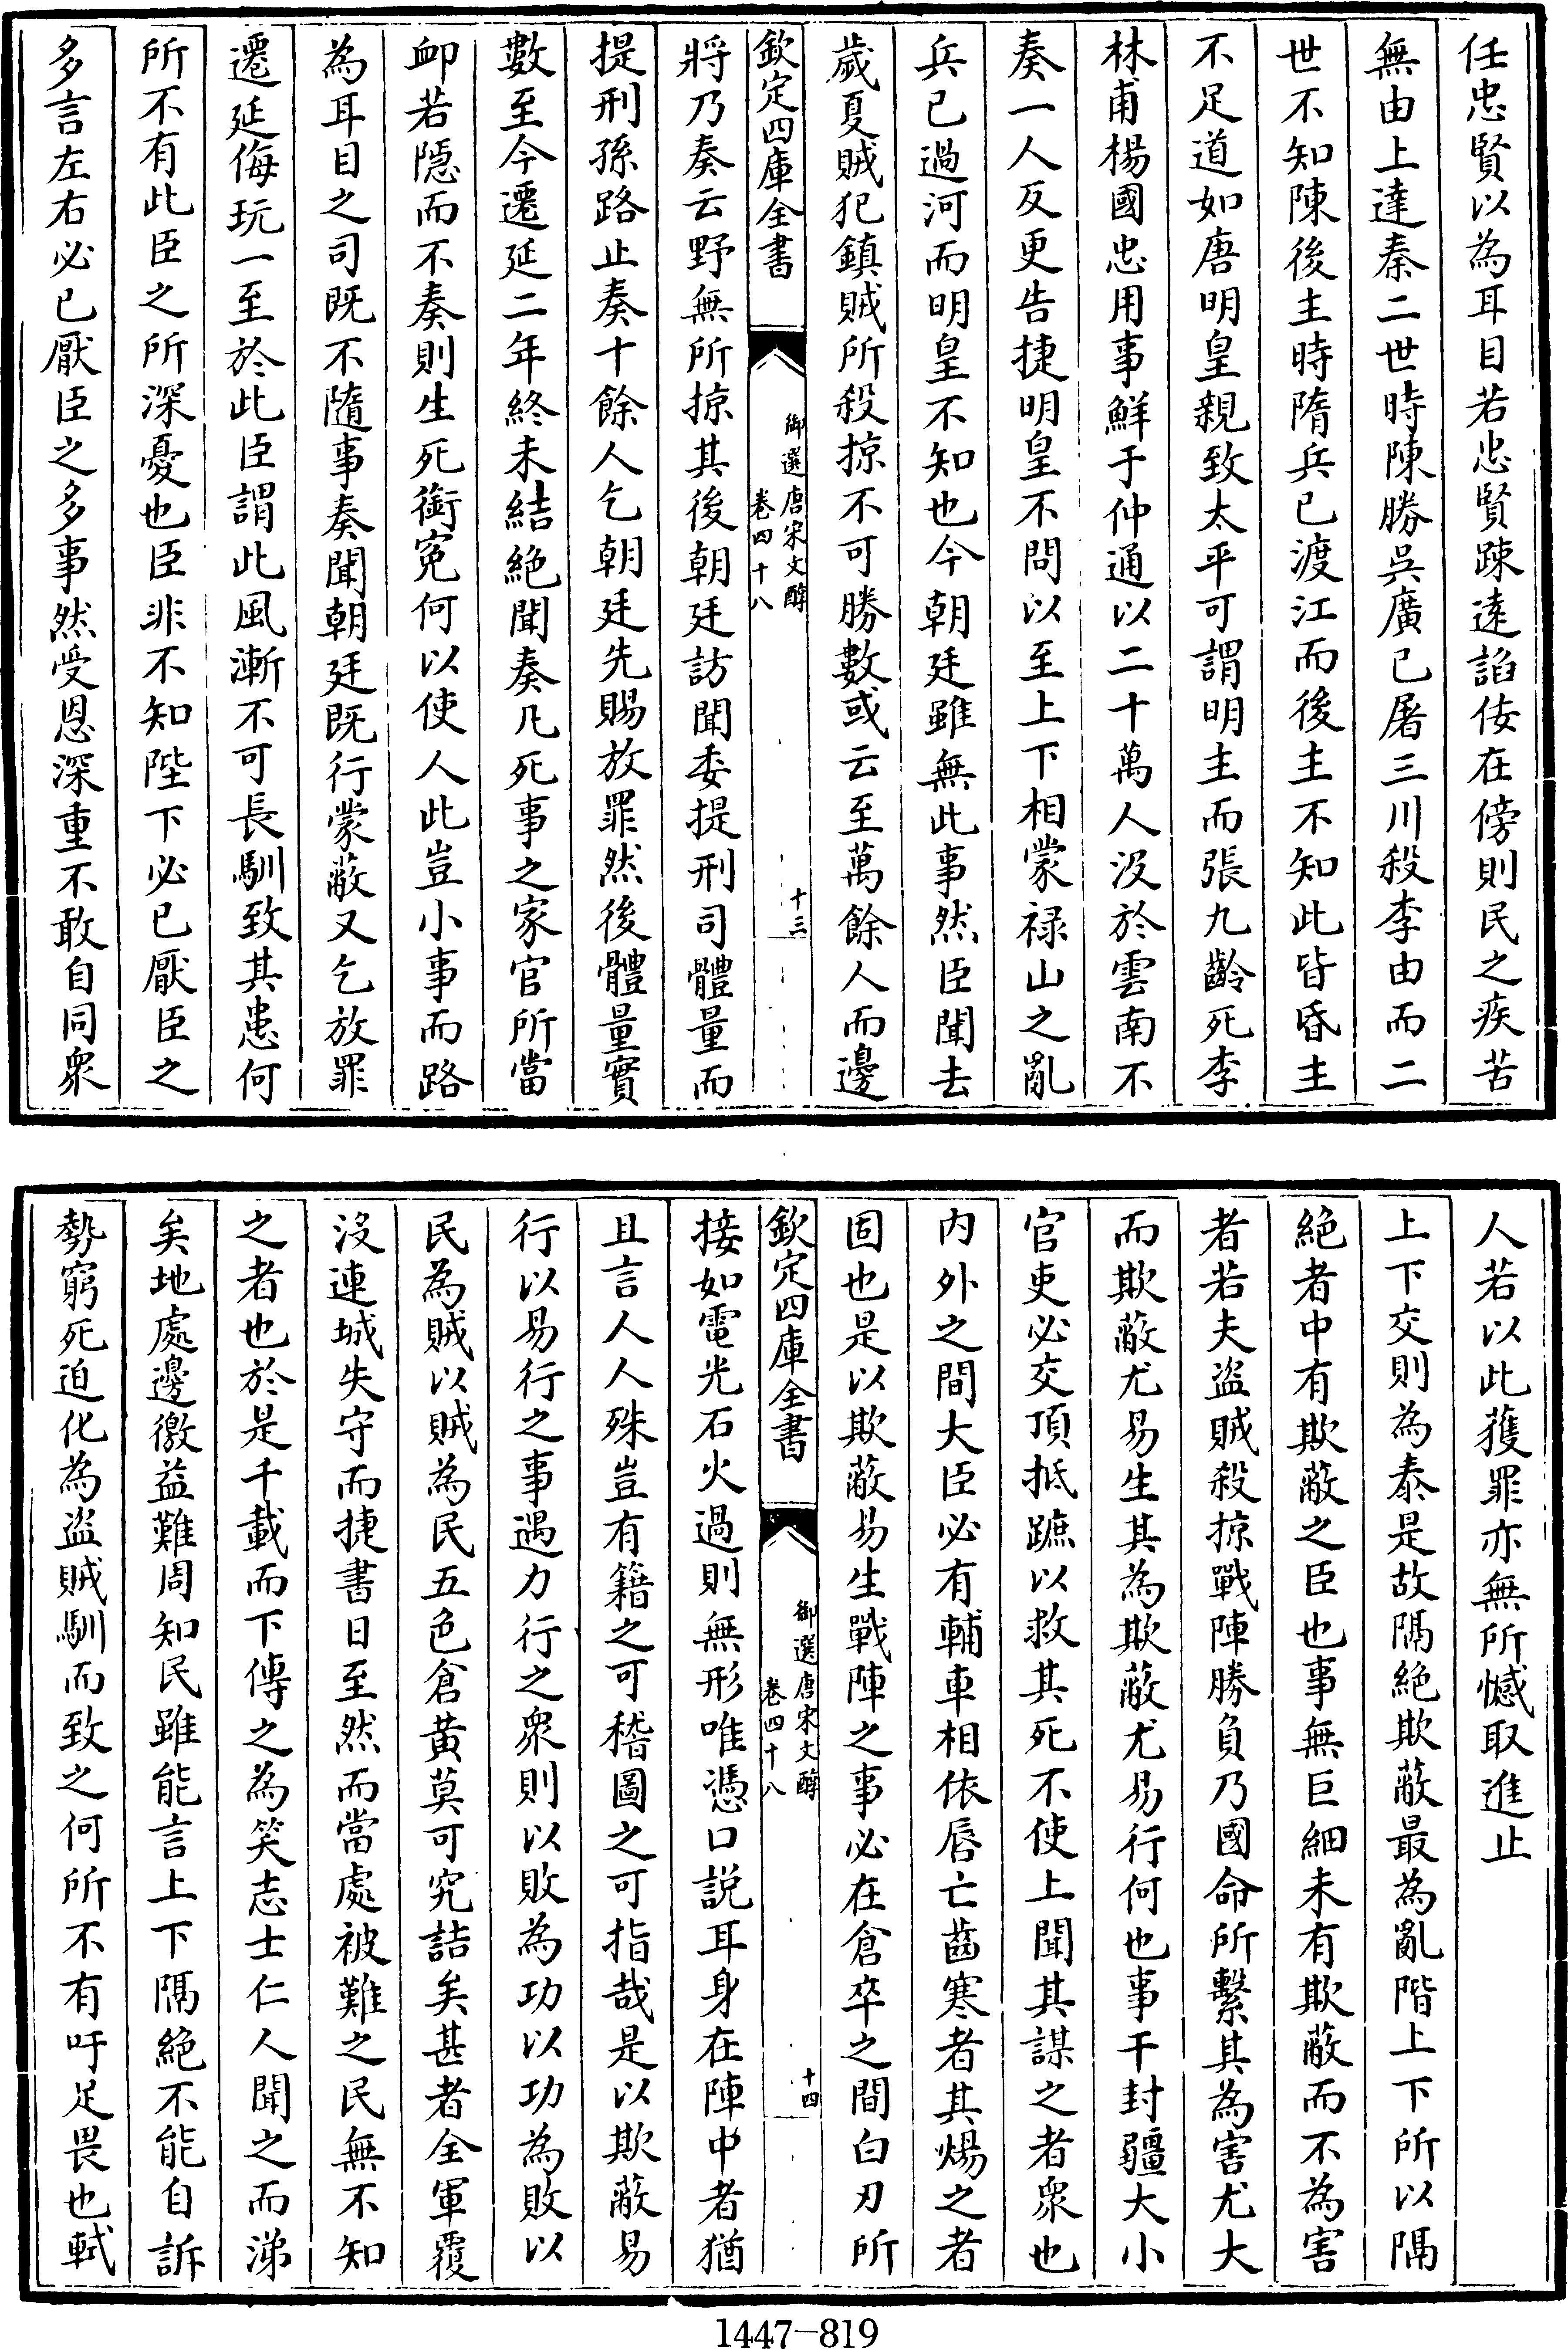 任忠賢以為耳目若忠賢踈逺諂佞在傍則民之疾苦
無由上達秦二世時陳勝吳廣已屠三川殺李由而二
世不知陳後主時隋兵已渡江而後主不知此皆昏主
不足道如唐明皇親致太平可謂明主而張九齡死李
林甫楊國忠用事鮮于仲通以二十萬人沒於雲南不
奏一人反更告捷明皇不問以至上下相蒙祿山之亂
兵已過河而明皇不知也今朝廷雖無此事然臣聞去
歲夏賊犯鎮賊所殺掠不可勝數或云至萬餘人而邊
欽定四庫全書
御選唐宋文醇
卷四十八
十三
將乃奏云野無所掠其後朝廷訪聞委提刑司體量而
提刑孫路止奏十餘人乞朝廷先賜放罪然後體量實
數至今遷延二年終未結絶聞奏凡死事之家官所當
卹若隱而不奏則生死銜寃何以使人此豈小事而路
為耳目之司既不隨事奏聞朝廷既行蒙蔽又乞放罪
遷延侮玩一至於此臣謂此風漸不可長馴致其患何
所不有此臣之所深憂也臣非不知陛下必已厭臣之
多言左右必已厭臣之多事然受恩深重不敢自同衆
人若以此獲罪亦無所憾取進止
上下交則為泰是故隔絶欺蔽最為亂階上下所以隔
絶者中有欺蔽之臣也事無巨細未有欺蔽而不為害
者若夫盜賊殺掠戰陣勝負乃國命所繫其為害尤大
而欺蔽尤易生其為欺蔽尤易行何也事干封疆大小
官吏必交頂抵蹠以救其死不使上聞其謀之者衆也
内外之間大臣必有輔車相依唇亡齒寒者其煬之者
固也是以欺蔽易生戰陣之事必在倉卒之間白刃所
欽定四庫全書
御選唐宋文醇
卷四十八
十四
接如電光石火過則無形唯憑口説耳身在陣中者猶
且言人人殊豈有籍之可稽圖之可指哉是以欺蔽易
行以易行之事遇力行之衆則以敗為功以功為敗以
民為賊以賊為民五色倉黃莫可究詰矣甚者全軍覆
沒連城失守而捷書日至然而當處被難之民無不知
之者也於是千載而下傳之為笑志士仁人聞之而涕
矣地處邊徼益難周知民雖能言上下隔絶不能自訴
勢窮死迫化為盜賊馴而致之何所不有吁足畏也軾
1447-819